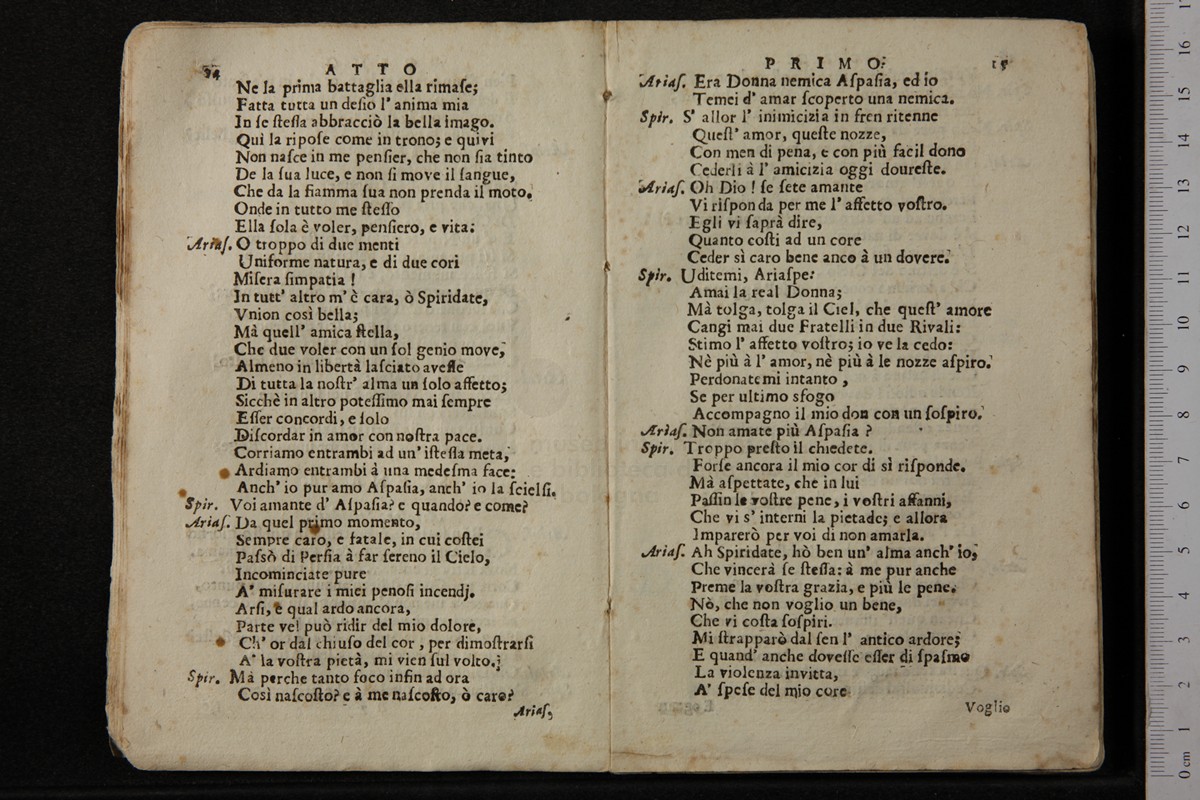 34
ATTO
Ne la prima battaglia ella rimaſe;
Fatta tutta un deſio l' anima mia
In ſe ſteſſa abbracciò la bella imago.
Quì la ripoſe come in trono; e quivi
Non naſce in me penſier, che non ſia tinto
De la ſua luce, e non ſi move il ſangue,
Che da la fiamma ſua non prenda il moto.
Onde in tutto me ſteſſo
Ella ſola è voler, penſiero, e vita;
Ariaſ. O troppo di due menti
Uniforme natura, e di due cori
Miſera ſimpatia !
In tutt' altro m' è cara, ò Spiridate,
Vnion così bella;
Mà quell' amica ſtella,
Che due voler con un ſol genio move,
Almeno in libertà laſciato aveſſe
Di tutta la noſtr' alma un ſolo affetto;
Sicchè in altro poteſſimo mai ſempre
Eſſer concordi, e ſolo
Diſcordar in amor con noſtra pace.
Corriamo entrambi ad un' iſteſſa meta,
Ardiamo entrambi à una medeſma face:
Anch' io pur amo Aſpaſia, anch' io la ſcielſi.
Spir. Voi amante d' Aſpaſia? e quando? e come?
Ariaſ. Da quel primo momento,
Sempre caro, e fatale, in cui coſtei
Paſsò di Perſia à far ſereno il Cielo,
Incominciate pure
A' miſurare i miei penoſi incendj.
Arſi, e qual ardo ancora,
Parte vel può ridir del mio dolore,
Ch' or dal chiuſo del cor , per dimoſtrarſi
A' la voſtra pietà, mi vien ſul volto.
Spir. Mà perche tanto foco infin ad ora
Così naſcoſto? e à me naſcoſto, ò caro?
Ariaſ,
PRIMO.
15
Ariaſ. Era Donna nemica Aſpaſia, ed io
Temei d' amar ſcoperto una nemica.
Spir. S' allor l' inimicizia in fren ritenne
Queſt' amor, queſte nozze,
Con men di pena, e con più facil dono
Cederli à l' amicizia oggi doureſte.
Ariaſ. Oh Dio ! ſe ſete amante
Vi riſponda per me l' affetto voſtro.
Egli vi ſaprà dire,
Quanto coſti ad un core
Ceder sì caro bene anco à un dovere.
Spir. Uditemi, Ariaſpe:
Amai la real Donna;
Mà tolga, tolga il Ciel, che queſt' amore
Cangi mai due Fratelli in due Rivali:
Stimo l' affetto voſtro; io ve la cedo:
Nè più à l' amor, nè più à le nozze aſpiro.
Perdonatemi intanto ,
Se per ultimo sfogo
Accompagno il mio don con un ſoſpiro.
Ariaſ. Non amate più Aſpaſia ?
Spir. Troppo preſto il chiedete.
Forſe ancora il mio cor di sì riſponde.
Mà aſpettate, che in lui
Paſſin le voſtre pene, i voſtri affanni,
Che vi s' interni la pietade; e allora
Imparerò per voi di non amarla.
Ariaſ. Ah Spiridate, hò ben un' alma anch' io;
Che vincerà ſe ſteſſa: à me pur anche
Preme la voſtra grazia, e più le pene.
Nò, che non voglio un bene,
Che vi coſta ſoſpiri.
Mi ſtrapparò dal ſen l' antico ardore;
E quand' anche doveſſe eſſer di ſpaſmo
La violenza invitta,
A' ſpeſe del mio core
Voglio